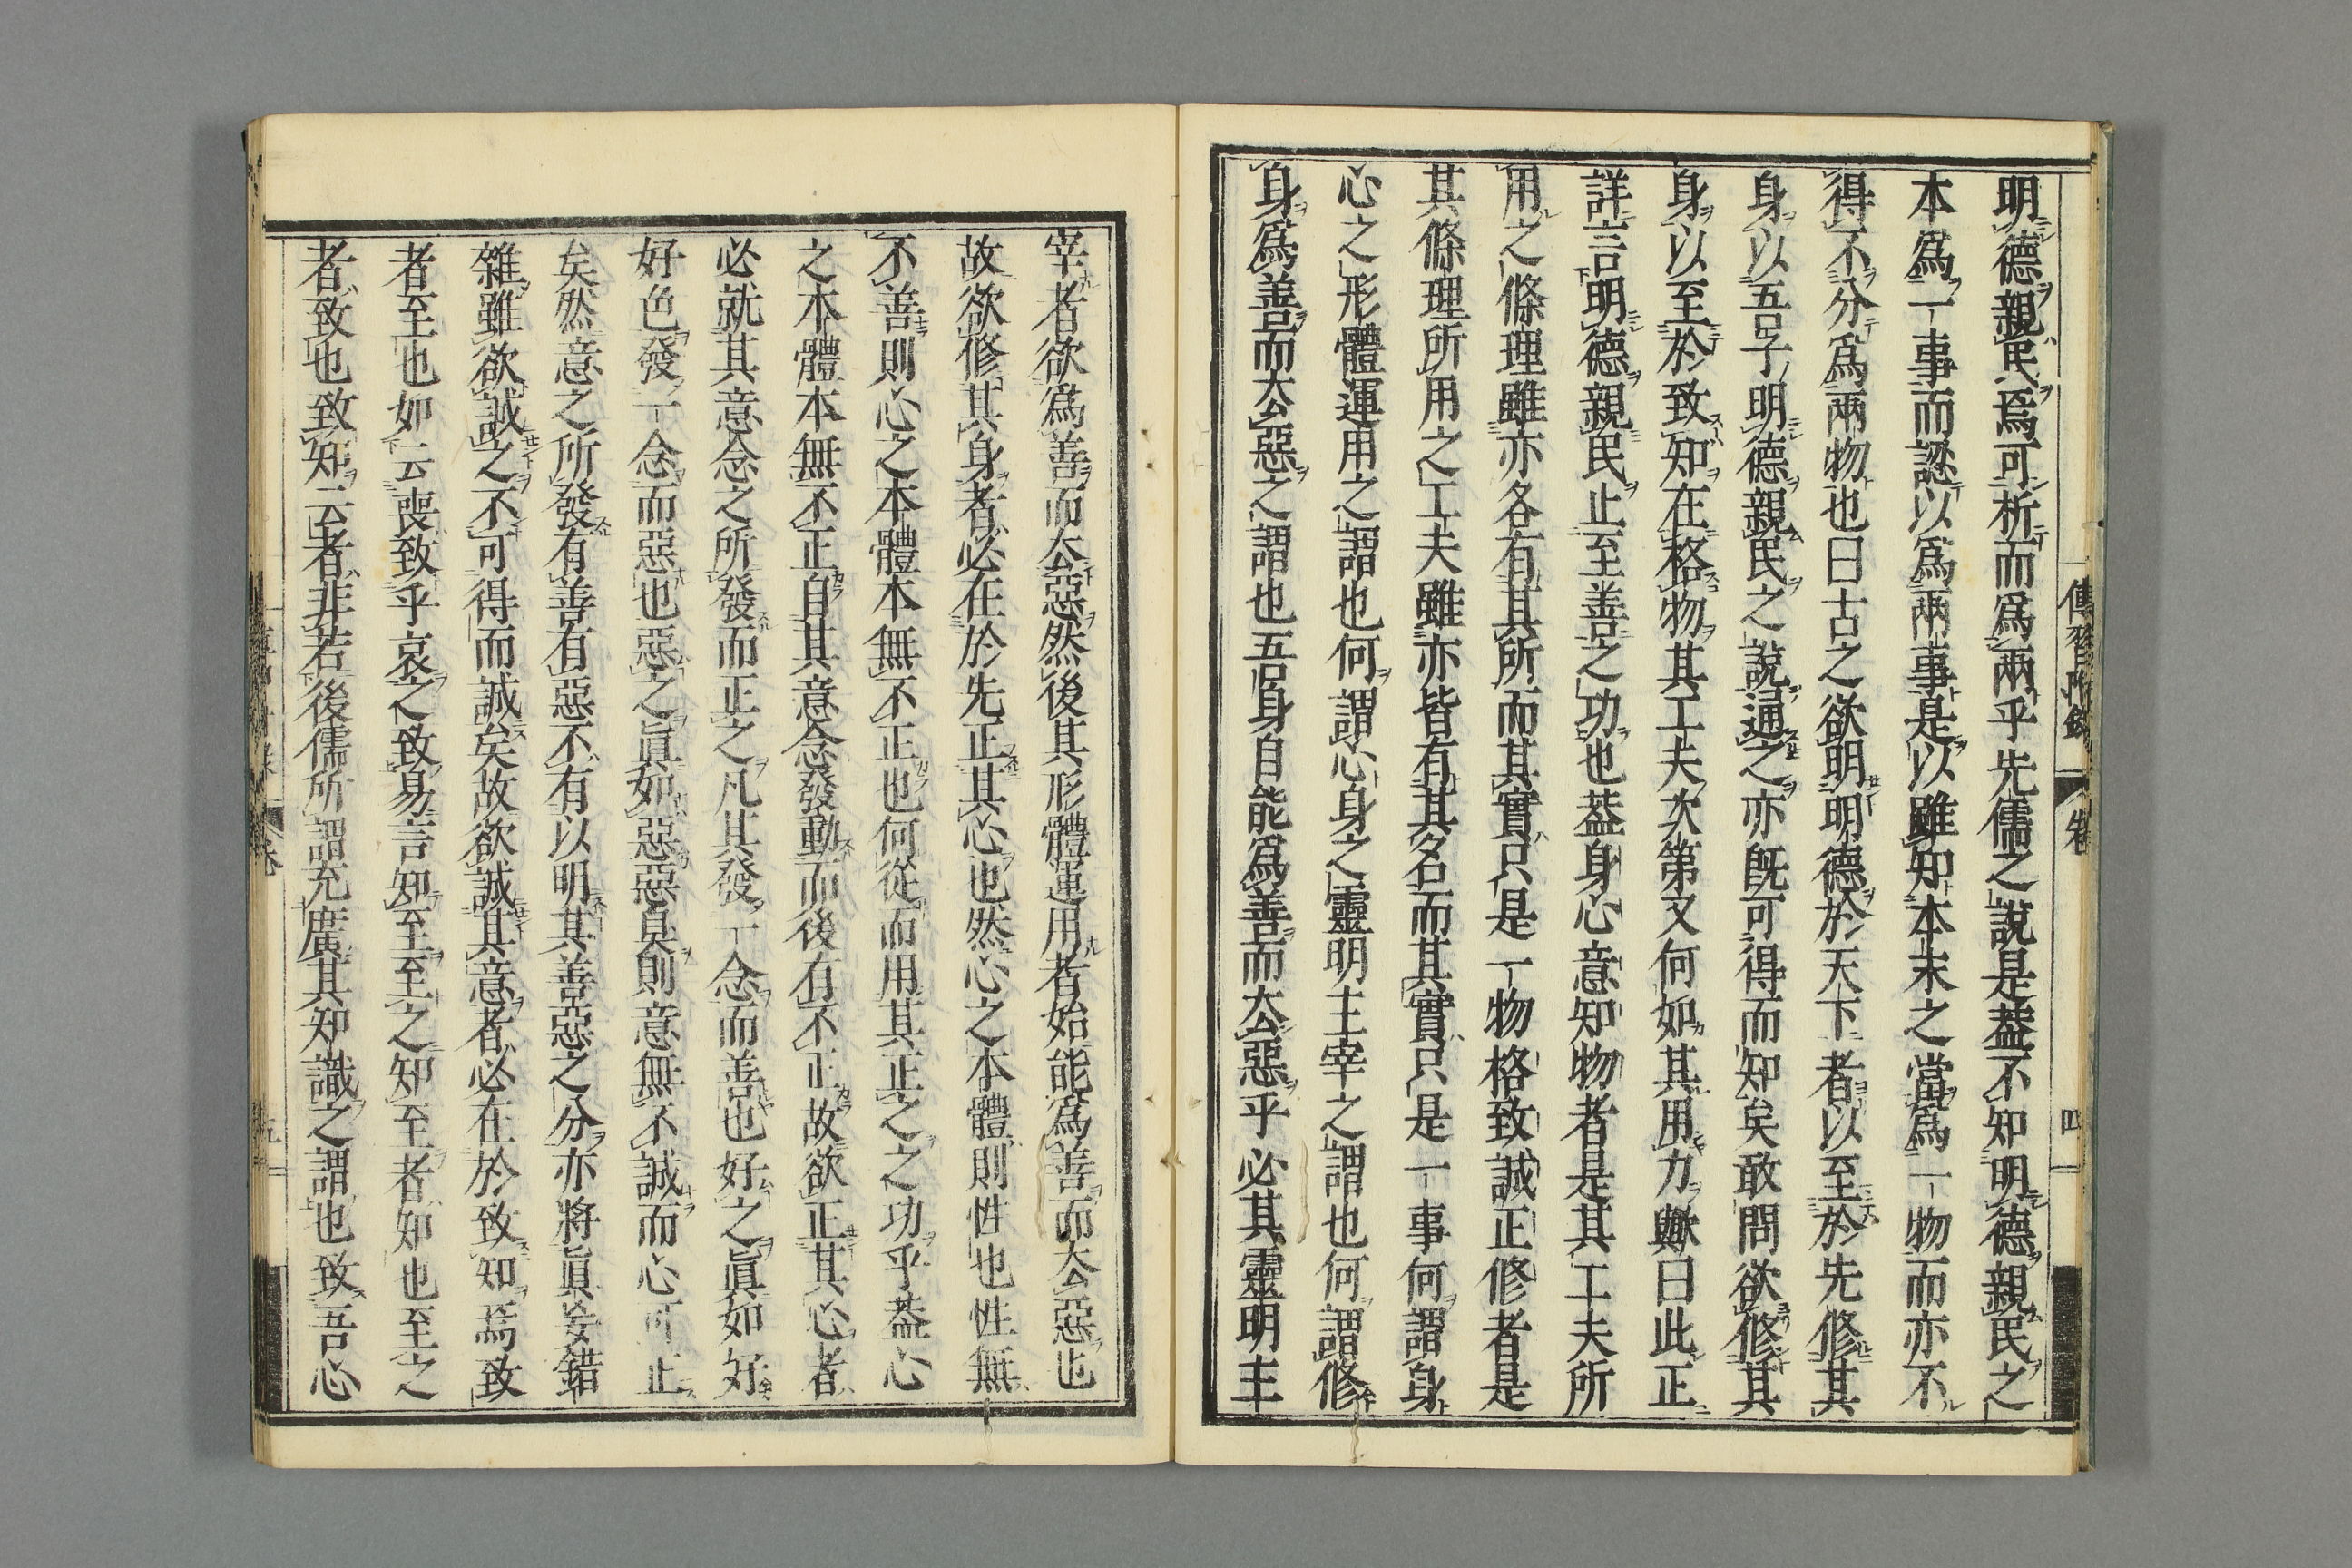 明德親民焉可析而爲兩乎先儒之說是葢不知明德親民之
本爲一事而認以爲兩事是以雖知本末之當爲一物而亦不
得不分爲兩物也曰古之欲明明德於天下者以至於先修其
身以吾子明德親民之說通之亦旣可得而知矣敢問欲修其
身以至於致知在格物其工夫次第又何如其用力歟曰此正
詳言明德親民止至善之功也葢身心意知物者是其工夫所
用之條理雖亦各有其所而其實只是一物格致誠正修者是
其條理所用之工夫雖亦皆有其名而其實只是一事何謂身
心之形體運用之謂也何謂心身之靈明主宰之謂也何謂修
身爲善而去惡之謂也吾身自能爲善而去惡乎必其靈明主
傳習附錄
卷
四
宰者欲爲善而去惡然後其形體運用者始能爲善而去惡也
故欲修其身者必在於先正其心也然心之本體則性也性無
不善則心之本體本無不正也何從而用其正之之功乎葢心
之本體本無不正自其意念發動而後有不正故欲正其心者
必就其意念之所發而正之凡其發一念而善也好之眞如好
好色發一念而惡也惡之眞如惡惡臭則意無不誠而心可正
矣然意之所發有善有惡不有以明其善惡之分亦將眞妄錯
雜雖欲誠之不可得而誠矣故欲誠其意者必在於致知焉致
者至也如云喪致乎哀之致易言知至至之知至者知也至之
者致也致知云者非若後儒所謂充廣其知識之謂也致吾心